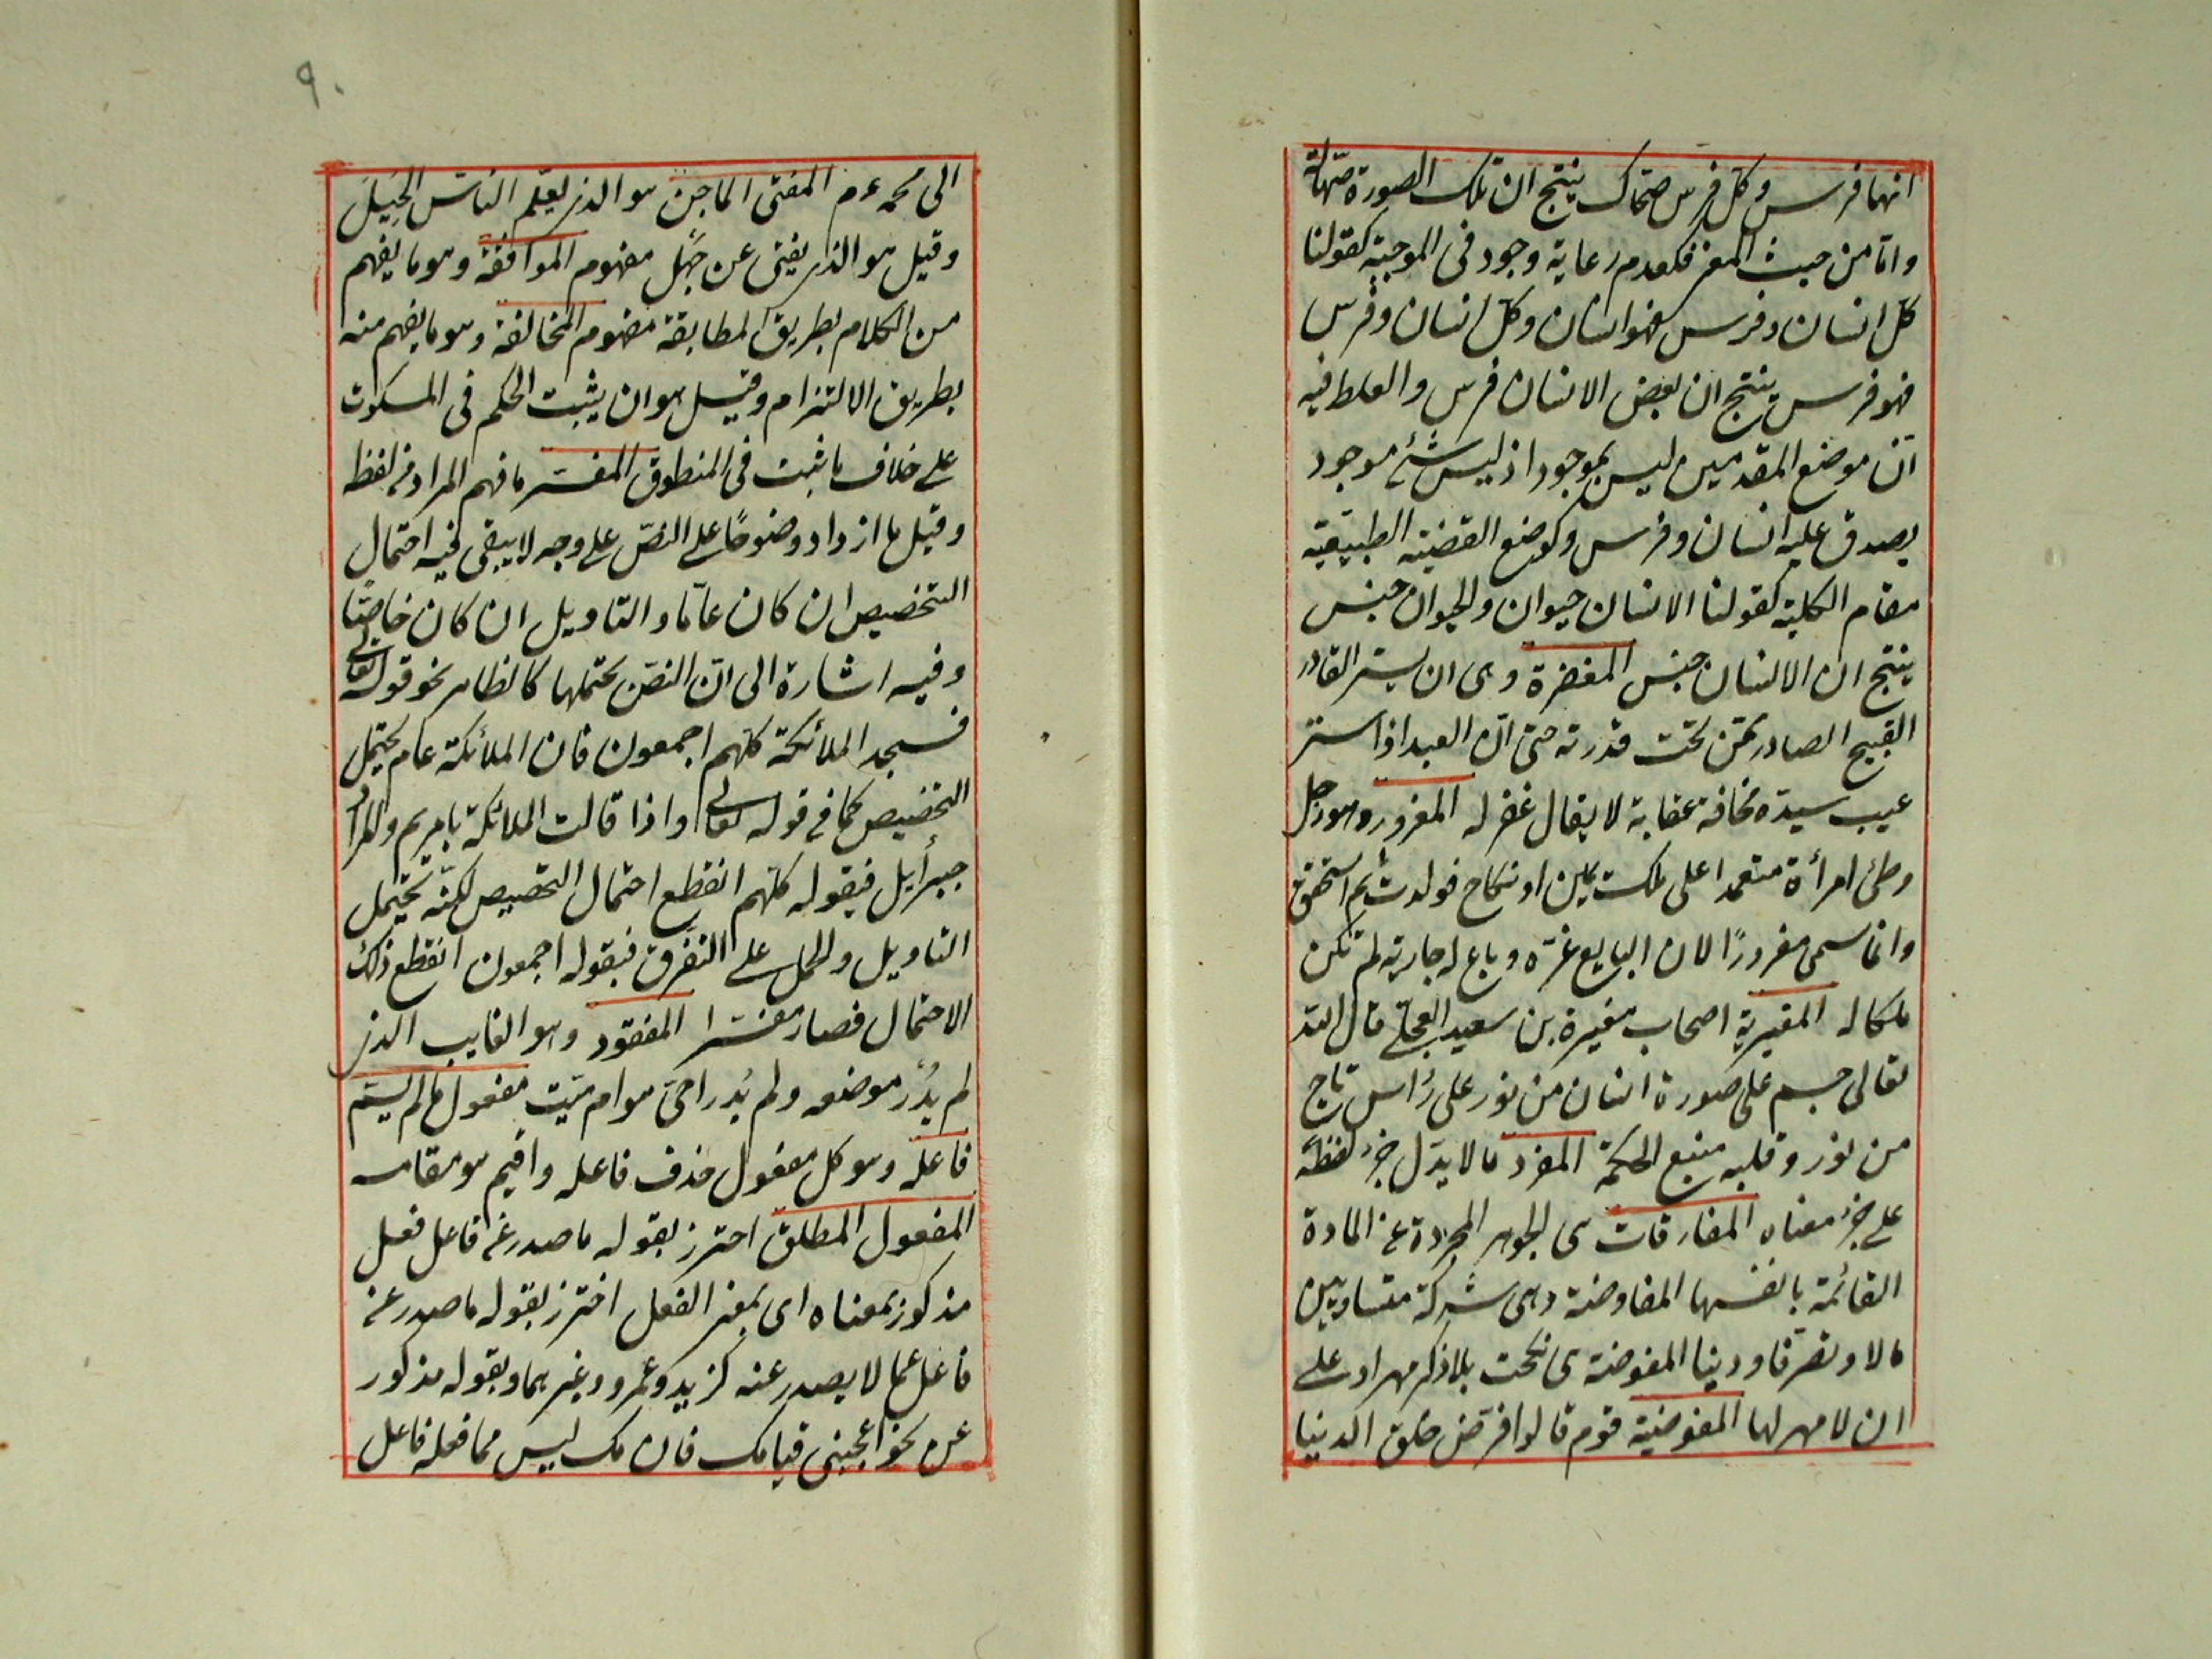 انها فرس وكل فرس ضحاك ينتج ان تلك الصورة صهالة
واما من حيث المعنى فكعدم رعاية وجود فى الموجبة كقولنا
كل انسان وفرس فهو انسان وكل انسان وفرس
فهو فرس ينتج ان بعض الانسان فرس والغلط فيه
ان موضع المقدمين ليس بموجود اذ ليس شئ موجود
يصدق عليه انسان وفرس وكوضع القضية الطبيعية
مقام الكلية كقولنا الانسان حيوان والحيوان جنس
ينتج ان الانسان جنس المغفرة وهى ان يستر القادر
القبيح الصادر ممن تحت قدرته حتى ان العبد اذا ستر
عيب سيده مخافة عقابه لا يقال غفر له المغرور وهو رجل
وطئ امرأة متعمدا على ملك يمين او نكاح فولدت ثم استحقت
وانما سمى مغرورًا لان البايع غره وباع له جارية لم تكن
ملكا له المغيرية اصحاب مغيرة بن سعيد العجلى قال الله
تعالى جسم على صورة انسان من نور على رأس تاج
من نور وقلبه منبع الحكمة المفرد ما لا يدل جزء لفظه
على جزء معناه المفارقات هى الجواهر المجردة عن المادة
القائمة بانفسها المفاوضة وهى شركة متساويين
مالا وتصرفا ودينا المفوضة هى نكحت بلا ذكر مهر او على
ان لا مهر لها المفوضية قوم قالوا فوض خلق الدنيا
٩٠
الى محمد عم المفتى الماجن هو الذى يعلم الناس الحيل
وقيل هو الذى يفتى عن جهل مفهوم الموافقة وهو ما يفهم
من الكلام بطريق المطابقة مفهوم المخالفة وهو ما يفهم منه
بطريق الالتزام وقيل هو ان يثبت الحكم فى المسكوت
على خلاف ما ثبت فى المنطوق المفسر ما فهم المراد من لفظه
وقيل ما ازداد وضوحًا على النص على وجه لا يبقى فيه احتمال
التخصيص ان كان عاما والتاويل ان كان خاصًا
وفيه اشارة الى ان النص يحتملها كالظاهر نحو قوله تعالى
فسجد الملائكة كلهم اجمعون فان الملائكة عام يحتمل
التخصيص كما فى قوله تعالى واذا قالت الملائكة يا مريم والمراد
جبرأيل فبقوله كلهم انقطع احتمال التخصيص لكنه يحتمل
التاويل والحمل على التفرق فبقوله اجمعون انقطع ذلك
الاحتمال فصار مفسرا المفقود وهو الغايب الذى
لم يُدْر موضعه ولم يُدر احى هو ام ميت مفعول ما لم يسم
فاعله وهو كل مفعول حذف فاعله واقيم هو مقامه
المفعول المطلق احترز بقوله ما صدر عن فاعل فعل
مذكور بمعناه اى بمعنى الفعل احترز بقوله ما صدر عن
فاعل عما لا يصدر عنه كزيد وعمرو وغيرهما وبقوله مذكور
عن نحو اعجبنى قيامك فان مك ليس مما فعله فاعل